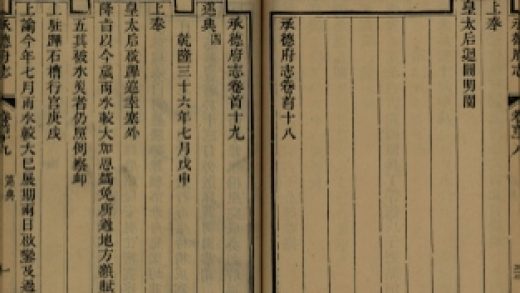 上奉
皇太后迴圓明園
承德府志卷首十八
承德府志卷首十九
巡典四
乾隆三十六年七月戊申
上奉
皇太后啟蹕巡幸塞外
降旨以今歲雨水較大加恩蠲免所過地方額賦
五其被水災者仍照例察卹
上駐蹕石槽行宮庚戌
上諭今年七月雨水較大已展期兩日啟鑾及過
承德府志
卷首十九
巡典
一